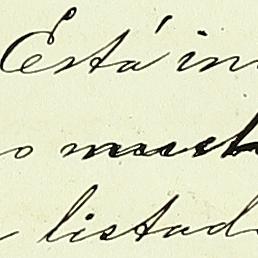 Está in
o much
listad